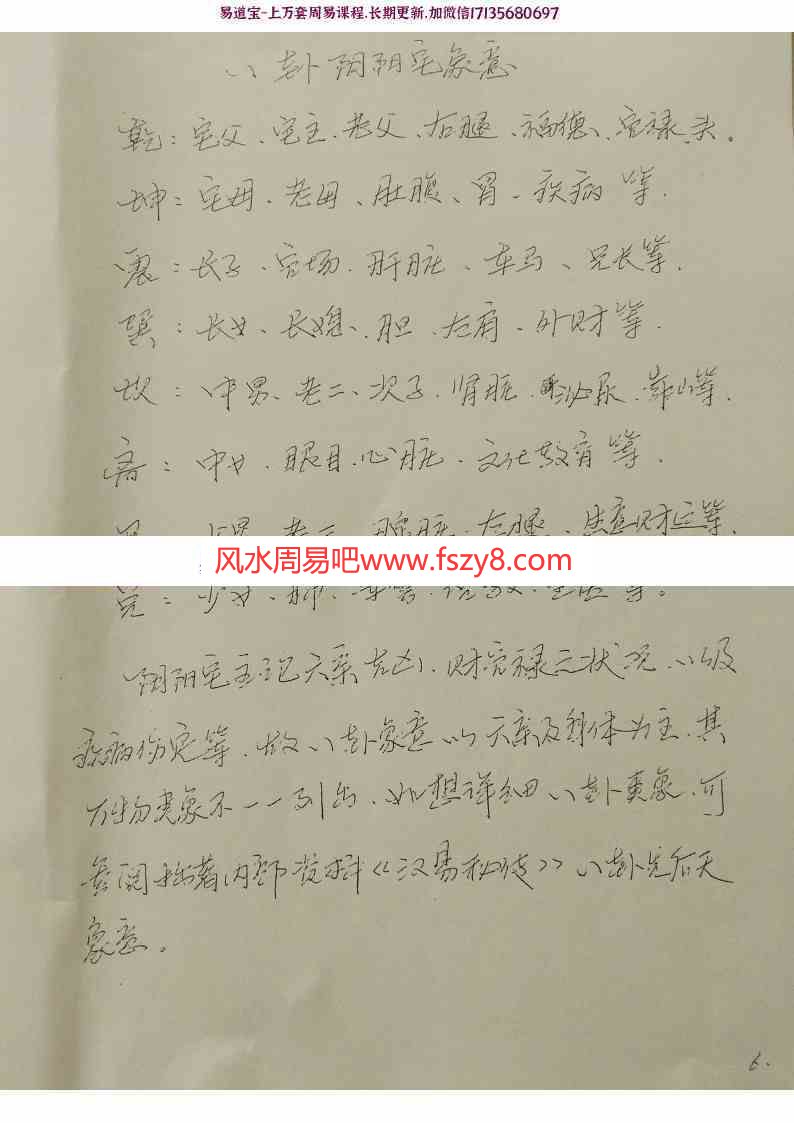 易道宝-上万套周易课程.长期更新.加微信17135680697
八卦阴阳宅象意
乾：宅父、宅主、老父、右腿、福德、官禄、头。
坤：宅母、老母、肚腹、胃、疾病等.
震：长子、官场、肝脏、车马、兄长等.
巽：长女、长媳、胆、左肩、外财等.
坎：中男、老二、次子、肾脏、泌尿、靠山等.
离：中女、眼目、心脏、文化教育等.
老三、脾脏、左腿、生意财运等.
风水周易吧www.fszy8.com
兑：少女、肺、等。
阴阳宅主记六亲吉凶、财官禄三状况、以及
疾病伤灾等、故八卦象意以六亲及身体为主、其
万物类象不一一列出、如想详细八卦类象、可
参阅拙著内部资料《汉易秘传》八卦先后天
象意。
6.